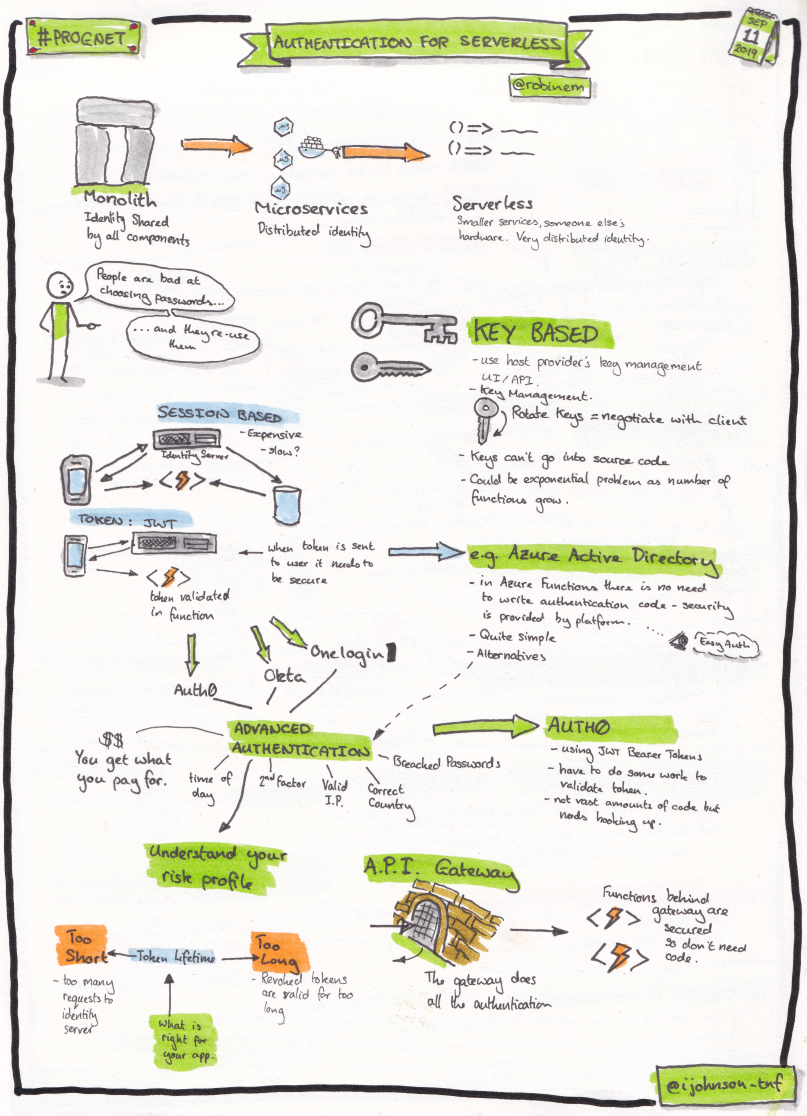 #PROGNET
AUTHENTICATION FOR SERVERLESS
SEP
11
2019
@robinem
Monolith
Identity Shared
by all components
µS
µS
µS
Microservices
Distributed identity
() => ___
() => ___
Serverless
Smaller services, someone else's
hardware. Very distributed identity.
People are bad at
choosing passwords...
...and they re-use
them
KEY BASED
- use host provider's key management
UI/API.
- Key Management.
Rotate Keys = negotiate with client
- Keys can't go into source code
- Could be exponential problem as number of
functions grow.
SESSION BASED
- Expensive
- slow?
Identity Server
< >
TOKEN: JWT
< >
token validated
in function
when token is sent
to user it needs to
be secure
e.g. Azure Active Directory
- in Azure Functions there is no need
to write authentication code - security
is provided by platform.
- Quite simple
- Alternatives
Easy Auth
Auth0
Okta
Onelogin
ADVANCED
AUTHENTICATION
$$
You get what
you pay for.
time of
day
2nd factor
Valid
I.P.
Correct
Country
Breached Passwords
AUTH0
- using JWT Bearer Tokens
- have to do some work to
validate token.
- not vast amounts of code but
needs hooking up.
Understand your
risk profile
A.P.I. Gateway
The gateway does
all the authentication
Functions behind
gateway are
secured
so don't need
code.
< >
< >
Too
Short
- too many
requests to
identity
server
Token Lifetime
Too
Long
- Revoked tokens
are valid for too
long
What is
right for
your app.
@ijohnson_tnf